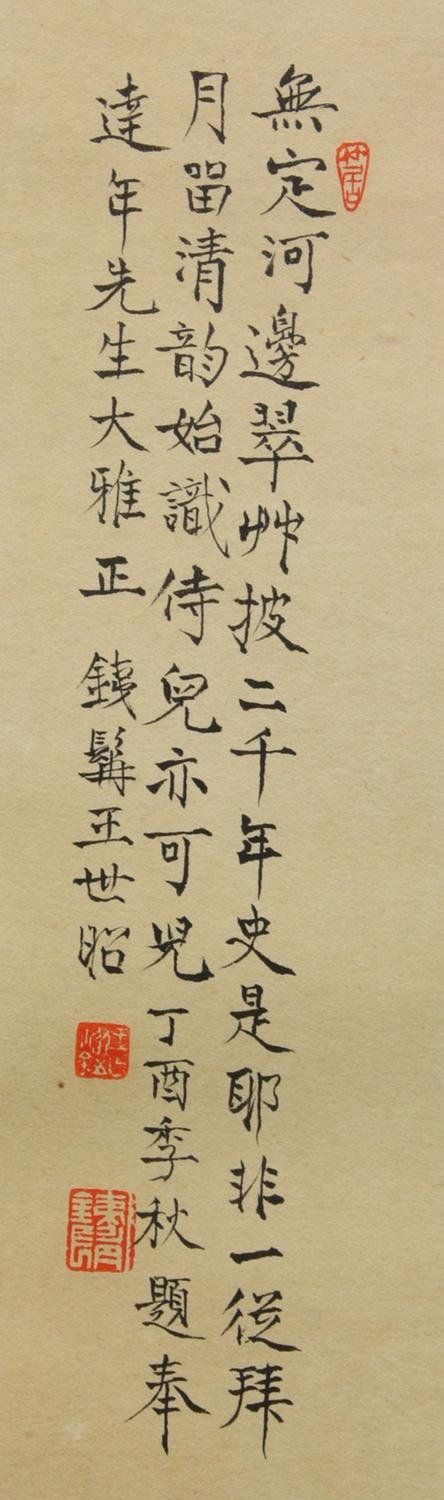 無定河邊翠艸披二千年史是耶非一從拜
月留清韵始識侍兒亦可兒丁酉季秋題奉
達年先生大雅正 銕髯王世昭